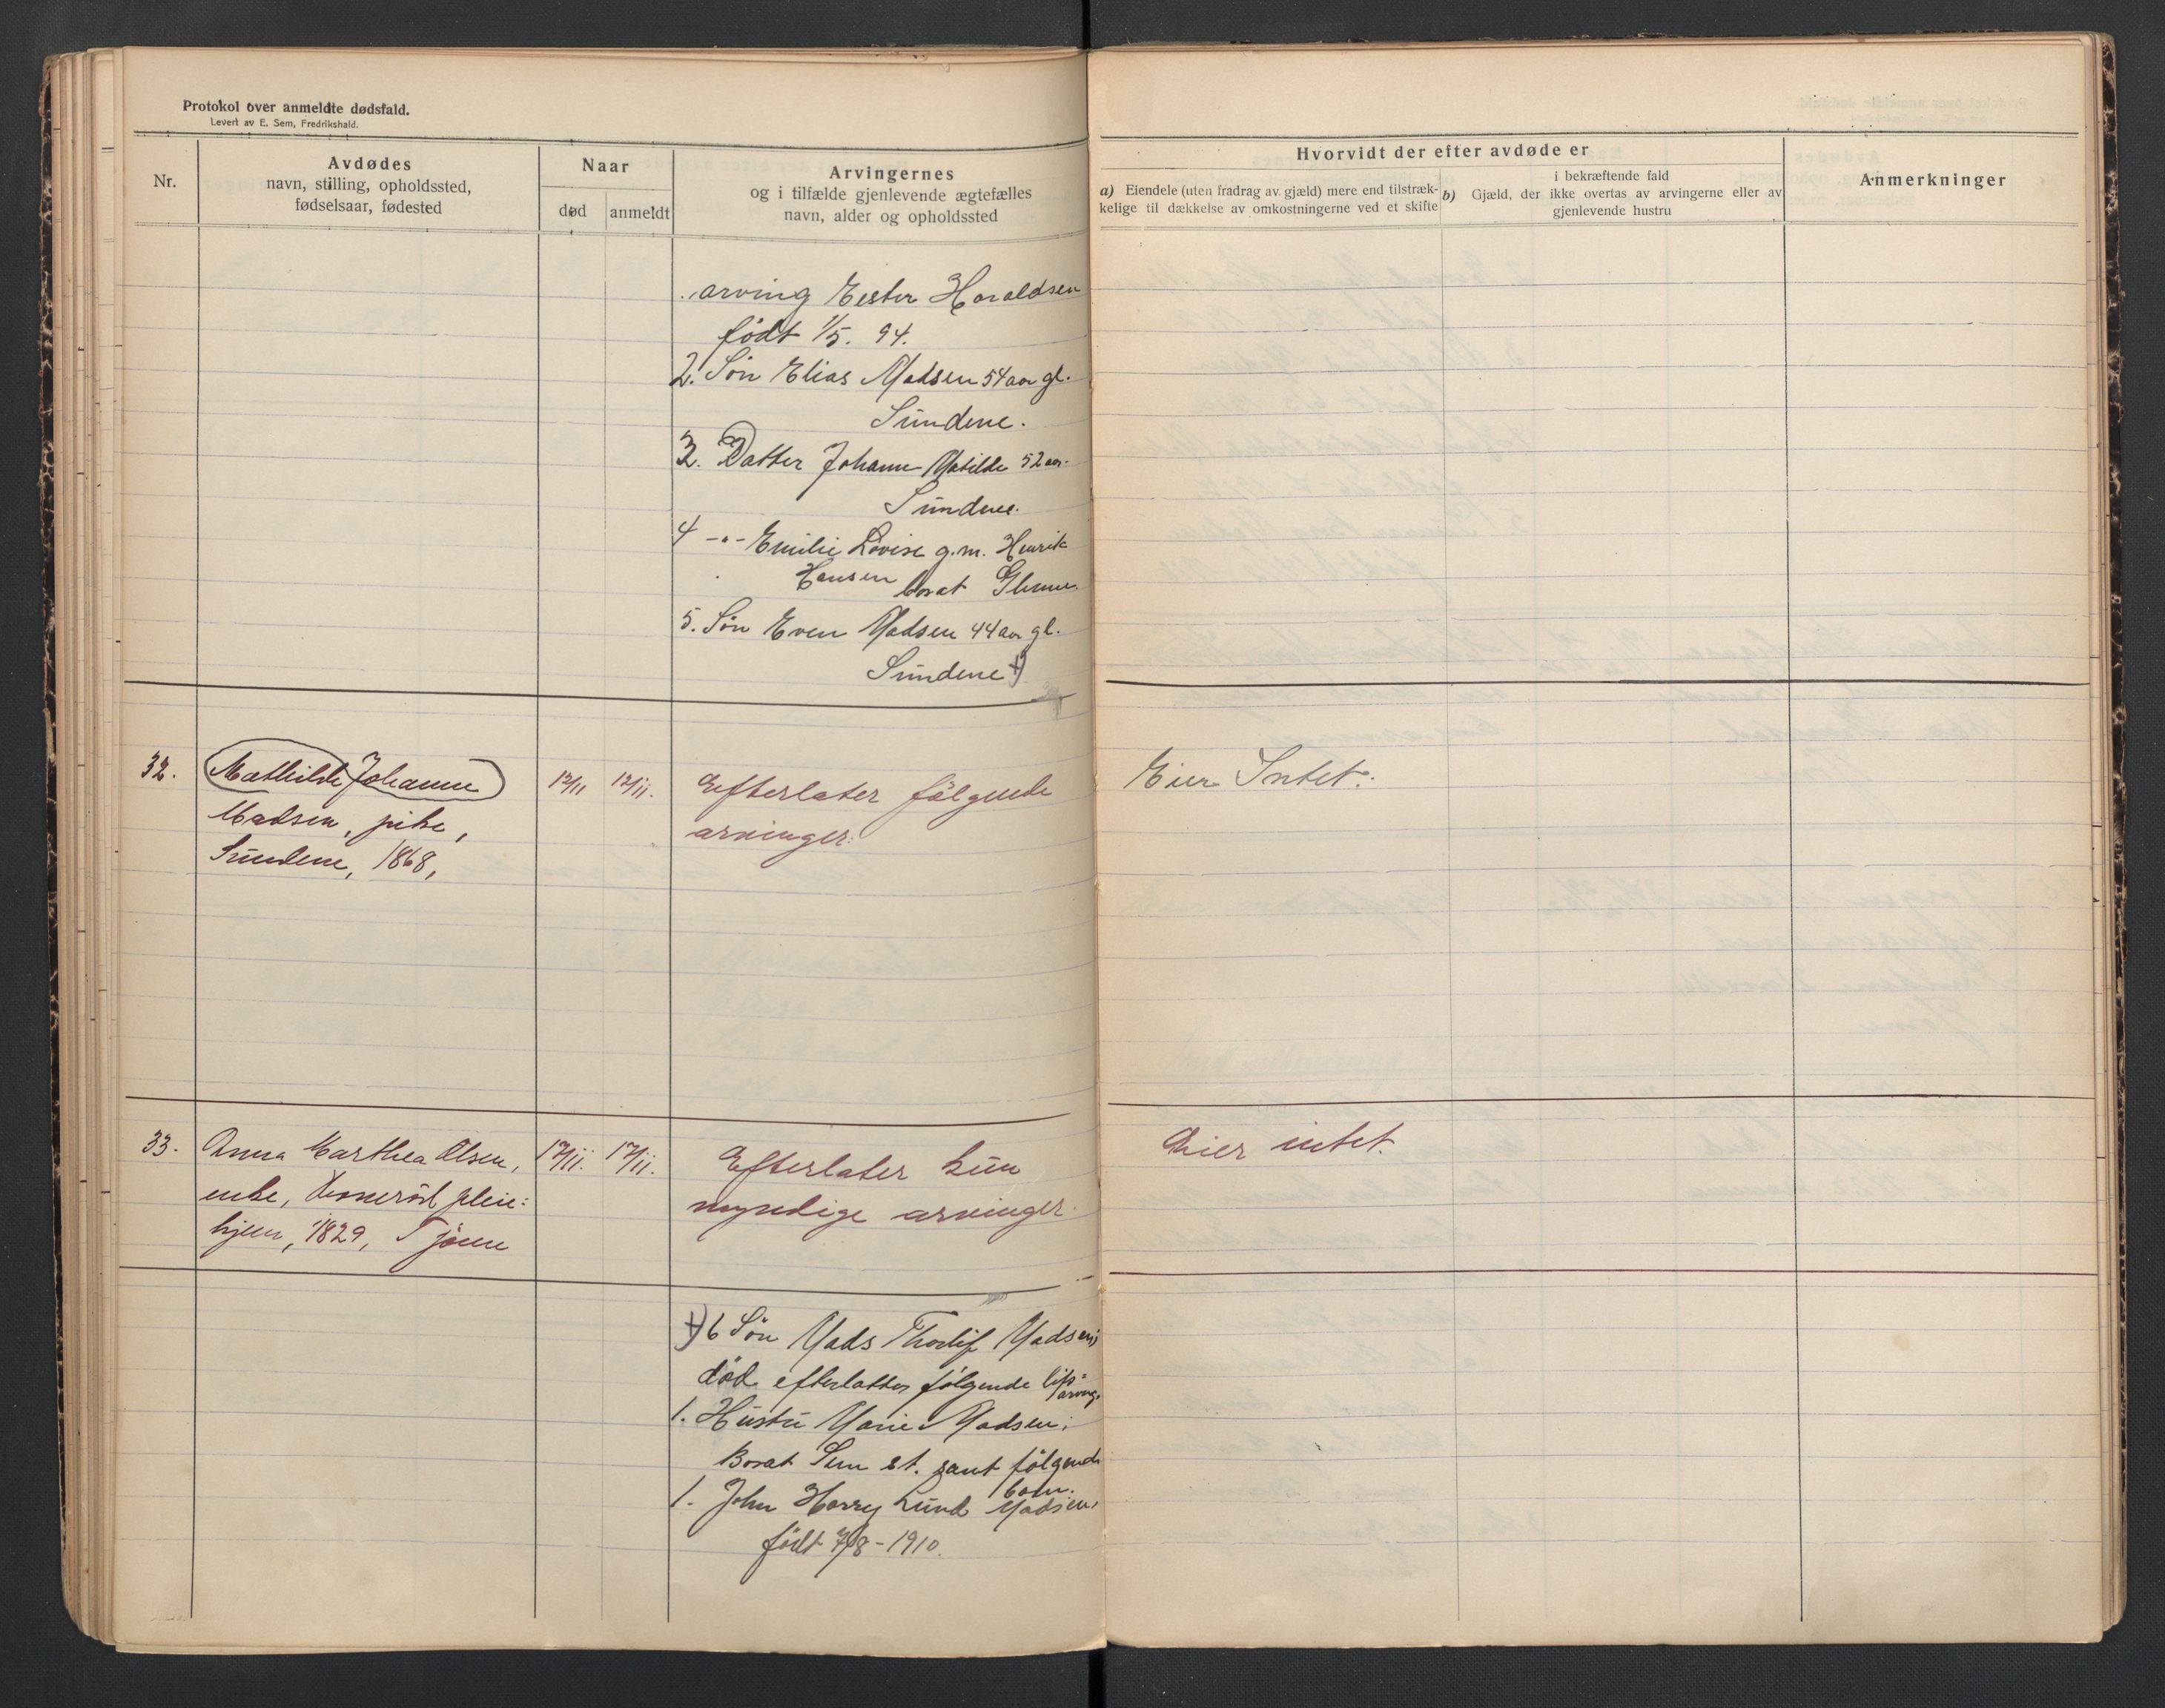 Protokol over anmeldte dødsfald.
Levert av E. Sem, Fredrikshald.
Nr.
Avdødes
navn, stilling, opholdssted,
fødselsaar, fødested
Naar
død
anmeldt
Arvingernes
og i tilfælde gjenlevende ægtefælles
navn, alder og opholdssted
Hvorvidt der efter avdøde er
a) Eiendele (uten fradrag av gjæld) mere end tilstræk-
kelige til dækkelse av omkostningerne ved et skifte
i bekræftende fald
b) Gjæld, der ikke overtas av arvingerne eller av
gjenlevende hustru
Anmerkninger
arving Ester Haraldsen
født 1/5. 94.
2. Søn Elias Madsen 54 aar gl.
Sundene.
3. Datter Johanne Matilde 52 aar
Sundene.
4 -"- Emilie Lovise g.m. Henrik
Hansen bosat Glemme
5. Søn Even Madsen 44 aar gl.
Sundene +)
32.
Mathilde Johanne
Madsen, pike,
Sundene, 1868,
12/11
12/11.
Efterlater følgende
arvinger:
Eier Intet.
33.
Anna Marthea Olsen,
enke, pleie-
hjem, 1829, Tjøme
17/11.
17/11.
Efterlater kun
myndige arvinger.
Eier intet.
+) 6 Søn Mads Thorlif Madsen,
død efterlatter følgende lifs-
arving.
1. Hustru Marie Madsen,
Bosat Sem st. samt følgende
barn.
1. John Harry Lund Madsen,
født 7/8-1910.